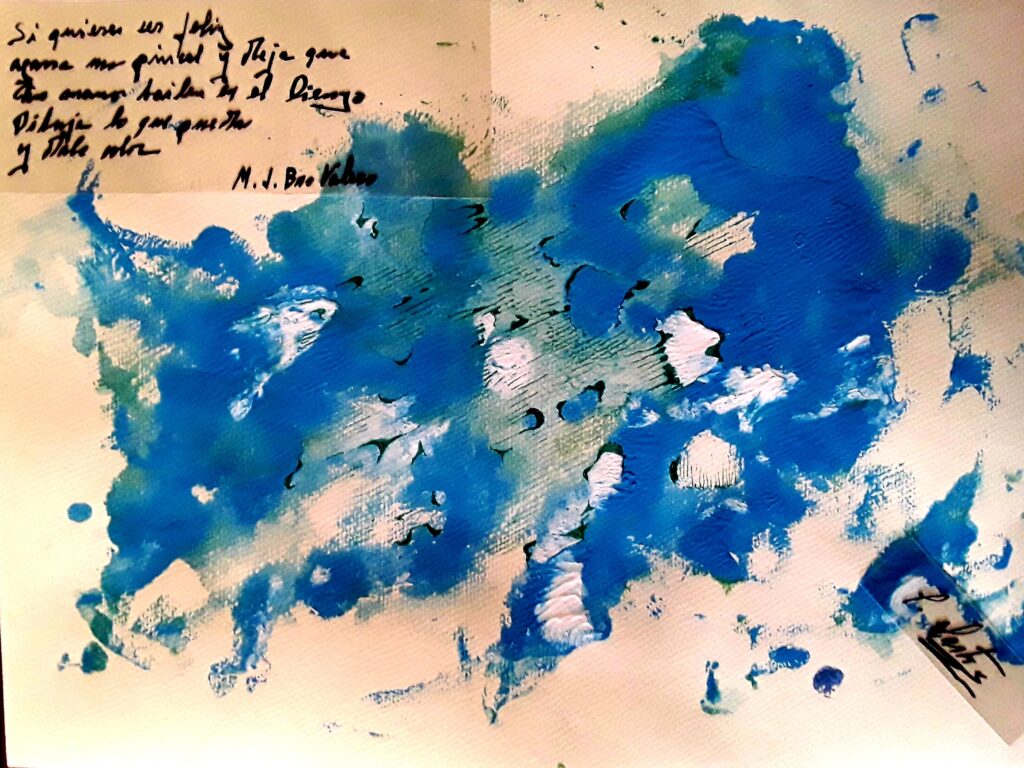 Si quieres ser feliz
agarra un pincel y deja que
tus manos bailen en el lienzo
Dibuja lo que puedas
y dale color
M. J. Bao
P.